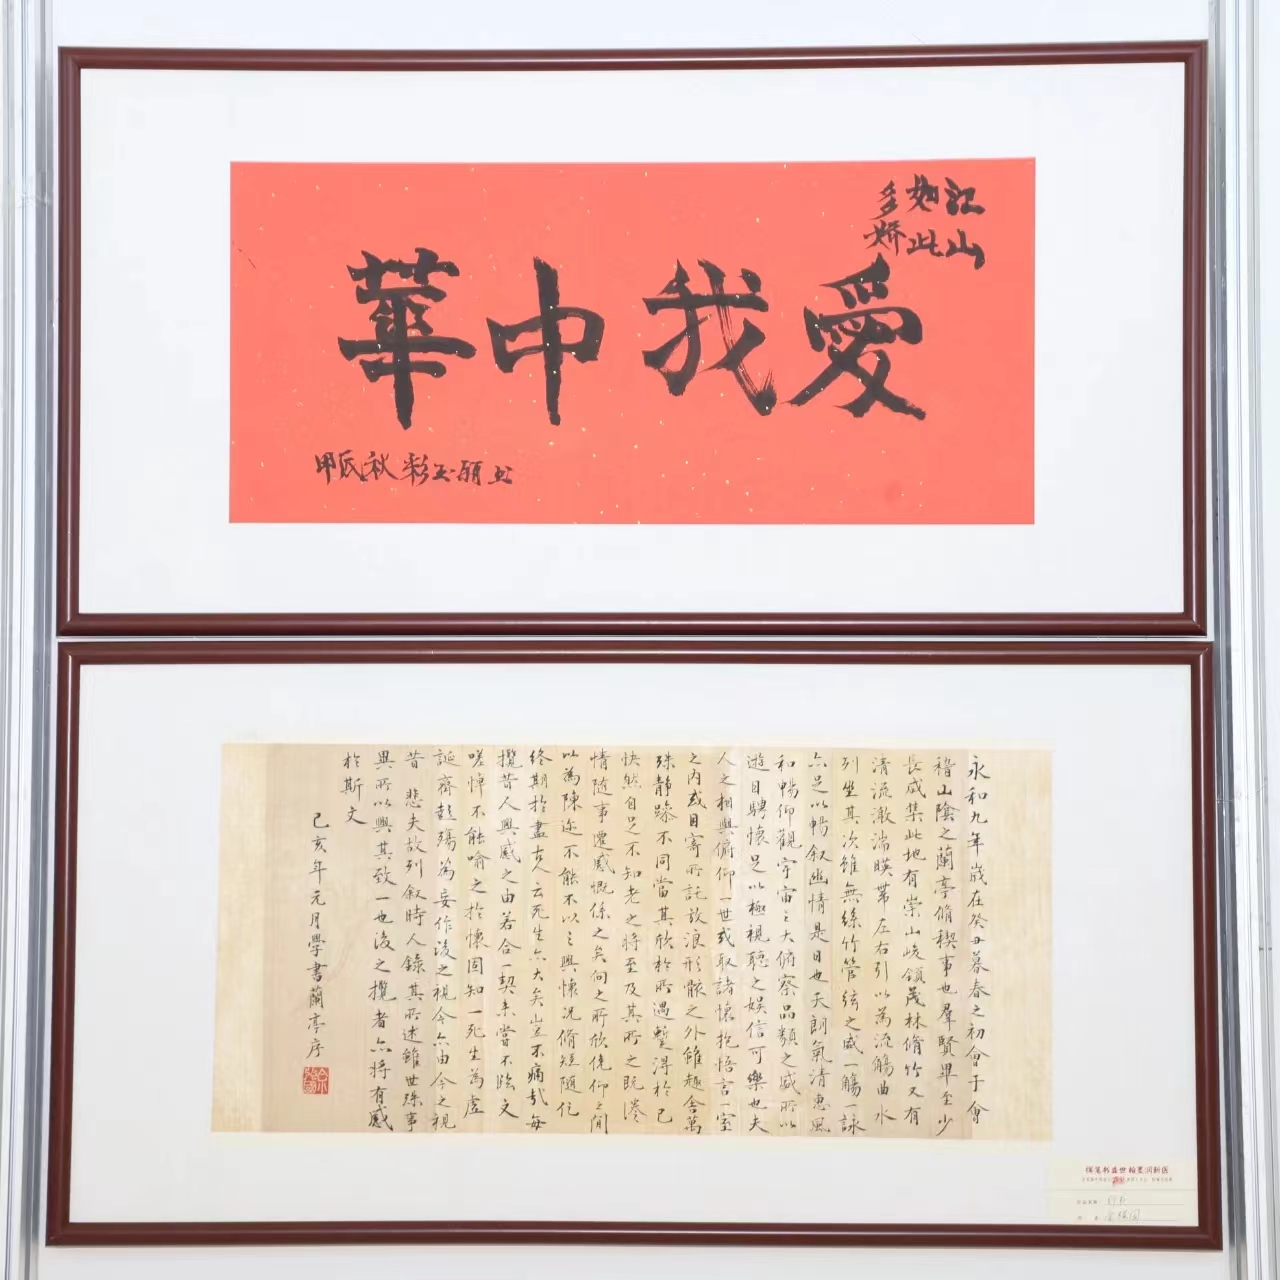 江山
如此
多娇
愛我中華
甲辰秋
永和九年歲在癸丑暮春之初會于會
稽山陰之蘭亭脩稧事也羣賢畢至少
長咸集此地有崇山峻領茂林脩竹又有
清流激湍暎帶左右引以為流觴曲水
列坐其次雖無絲竹管絃之盛一觴一詠
亦足以暢叙幽情是日也天朗氣清惠風
和暢仰觀宇宙之大俯察品類之盛所以
遊目騁懷足以極視聽之娛信可樂也夫
人之相與俯仰一世或取諸懷抱悟言一室
之内或因寄所託放浪形骸之外雖趣舍萬
殊靜躁不同當其欣於所遇暫得於己
快然自足不知老之將至及其所之既惓
情隨事遷感慨係之矣向之所欣俛仰之閒
以為陳迹不能不以之興懷況脩短隨化
終期於盡古人云死生亦大矣豈不痛哉每
攬昔人興感之由若合一契未嘗不臨文
嗟悼不能喻之於懷固知一死生為虛
誕齊彭殤為妄作後之視今亦由今之視
昔 悲夫故列叙時人錄其所述雖世殊事
異所以興其致一也後之攬者亦將有感
於斯文
己亥年元月學書蘭亭序